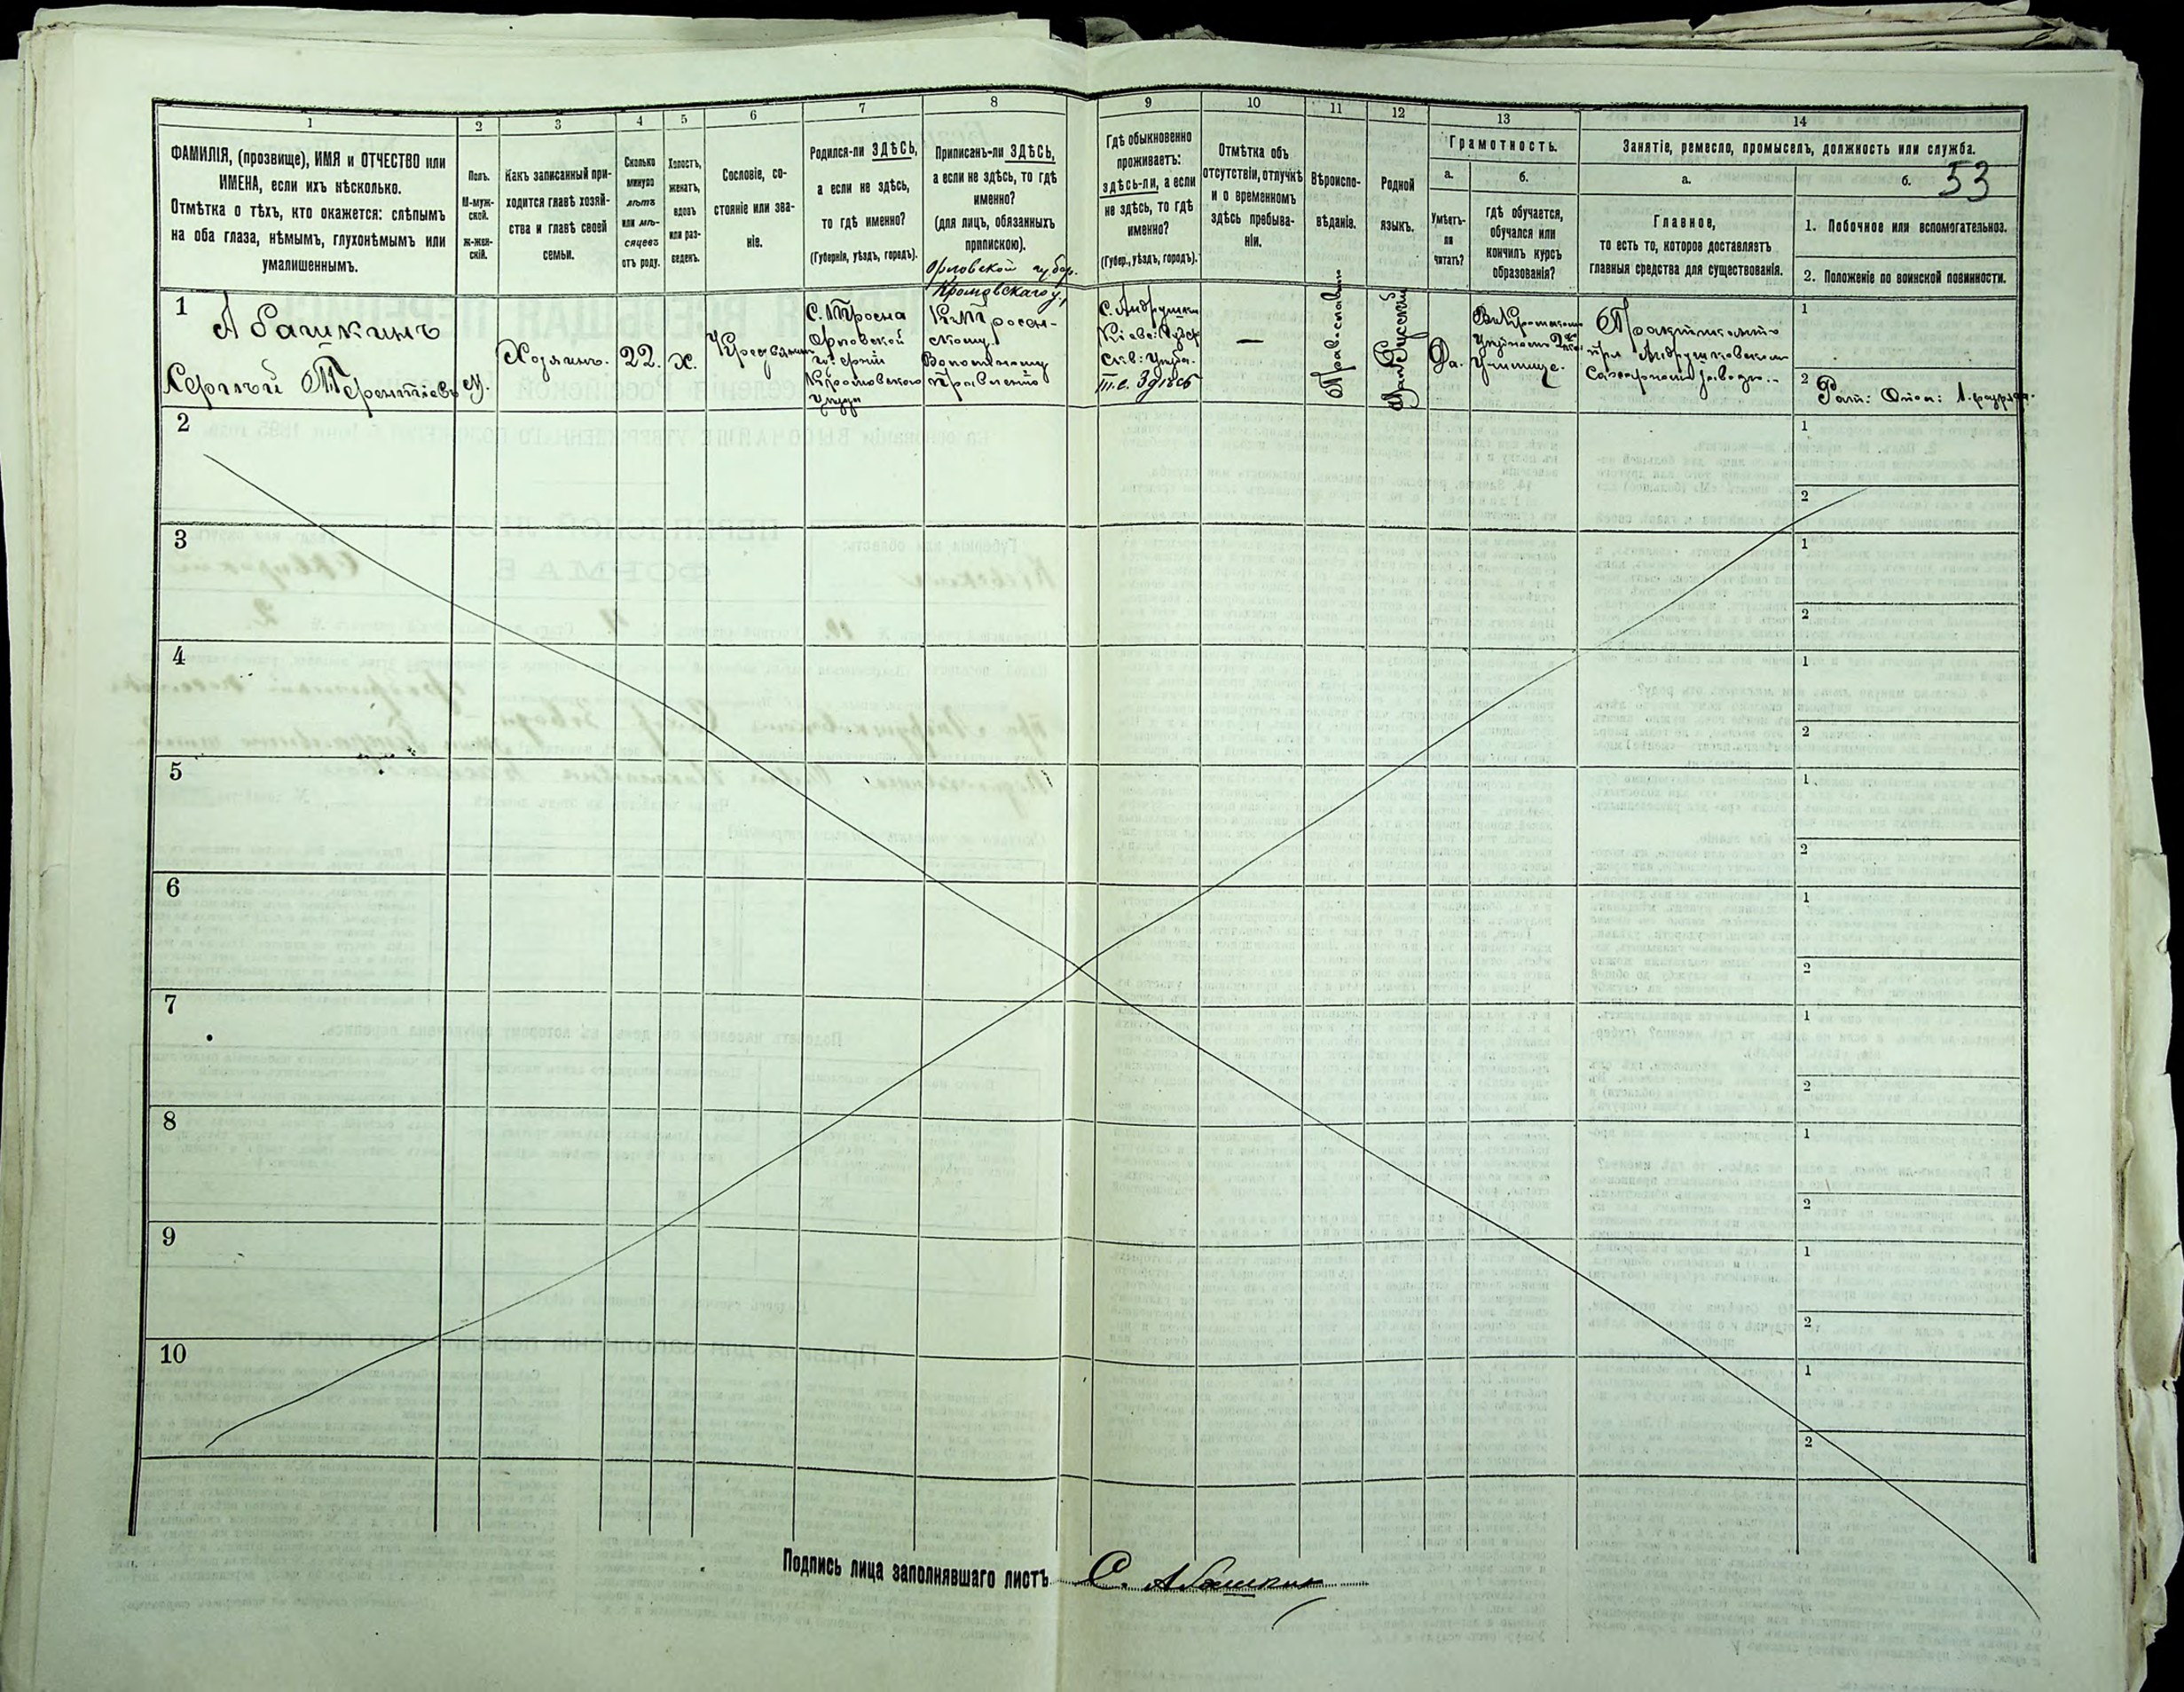 53
1
2
3
4
5
6
7
8
9
10
11
12
13
14
ФАМИЛІЯ, (прозвище), ИМЯ и ОТЧЕСТВО или
ИМЕНА, если ихъ нѣсколько.
Отмѣтка о тѣхъ, кто окажется: слѣпымъ
на оба глаза, нѣмымъ, глухонѣмымъ или
умалишеннымъ.
Полъ.
М-муж-
ской.
Ж-жен-
скій.
Какъ записанный при-
ходится главѣ хозяй-
ства и главѣ своей
семьи.
Сколько
минуло
лѣтъ
или мѣ-
сяцевъ
отъ роду.
Холостъ,
женатъ,
вдовъ
или раз-
веденъ.
Сословіе, со-
стояніе или зва-
ніе.
Родился-ли ЗДѢСЬ,
а если не здѣсь,
то гдѣ именно?
(Губернія, уѣздъ, городъ).
Приписанъ-ли ЗДѢСЬ,
а если не здѣсь, то гдѣ
именно?
(для лицъ, обязанныхъ
припискою).
Гдѣ обыкновенно
проживаетъ:
здѣсь-ли, а если
не здѣсь, то гдѣ
именно?
(Губер., уѣздъ, городъ).
Отмѣтка объ
отсутствіи, отлучкѣ
и о временномъ
здѣсь пребыва-
ніи.
Вѣроиспо-
вѣданіе.
Родной
языкъ.
Грамотность.
а.
Умѣетъ-
ли
читать?
б.
гдѣ обучается,
обучался или
кончилъ курсъ
образованія?
Занятіе, ремесло, промыселъ, должность или служба.
а.
Главное,
то есть то, которое доставляетъ
главныя средства для существованія.
б.
1. Побочное или вспомогательное.
2. Положеніе по воинской повинности.
1
Абашкинъ
Сергѣй Терентіевъ
М.
Хозяинъ.
22.
Х.
Крестьянинъ
С. Тросна
Орловской
губерніи
Кромскаго
уѣзда
Орловской губер.
Кромскаго у.,
къ Тросен-
скому
Волостному
Правленію
С. Андрушки
Кіевс: Губер
Скв: уѣзда.
т.е. Здѣсь
—
Православн
Русскій
Да.
училище.
при Андрушковскомъ
Сахарномъ заводѣ.
1
2 Рат: Опол: 1. разряда.
2
1
2
3
1
2
4
1
2
5
1
2
6
1
2
7
1
2
8
1
2
9
1
2
10
1
2
Подпись лица заполнявшаго листъ С. Абашкинъ